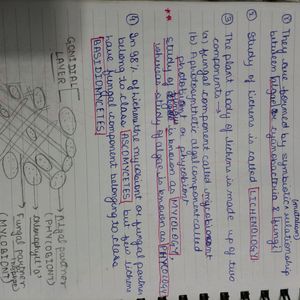 (mutualism)
① They are formed by symbiotic relationship
between blue green cyanobacteria & fungi
② Study of lichens is called LICHENOLOGY
③ The plant body of lichens is made up of two
components →
(a) fungal component called mycobiont
(b) photosynthetic algal component called
photobiont or phycobiont
** study of fungi is known as MYCOLOGY,
whereas study of algae is known as PHYCOLOGY
④ In 98% of lichens the mycobiont or fungal partner
belong to class ASCOMYCETES but few lichens
have fungal component belonging to class
BASIDIOMYCETES
GONIDIAL
LAYER
Algal partner
(PHYCOBIONT)
Chlorophyll 'a'
Fungal partner
(MYCOBIONT)